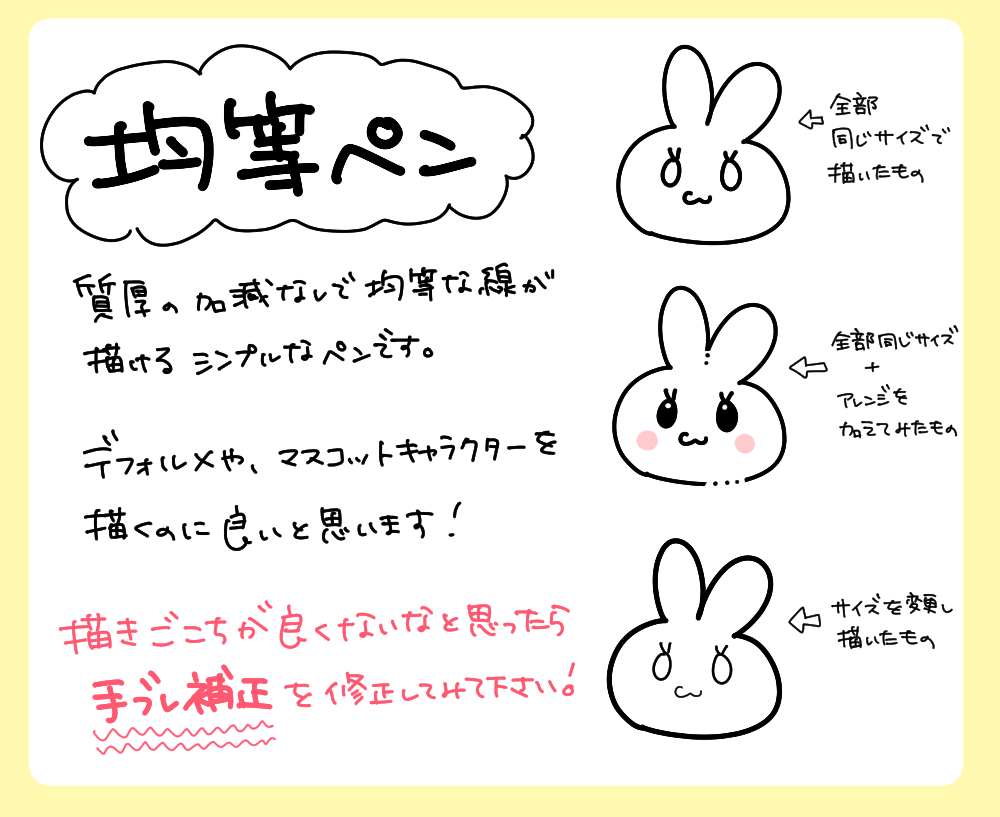 均等ペン
質厚の加減なしで均等な線が
描けるシンプルなペンです。
デフォルメや、マスコットキャラクターを
描くのに良いと思います!
描きごこちが良くないなと思ったら
手ブレ補正を修正してみて下さい!
全部
同じサイズで
描いたもの
全部同じサイズ
+
アレンジを
加えてみたもの
サイズを変更し
描いたもの